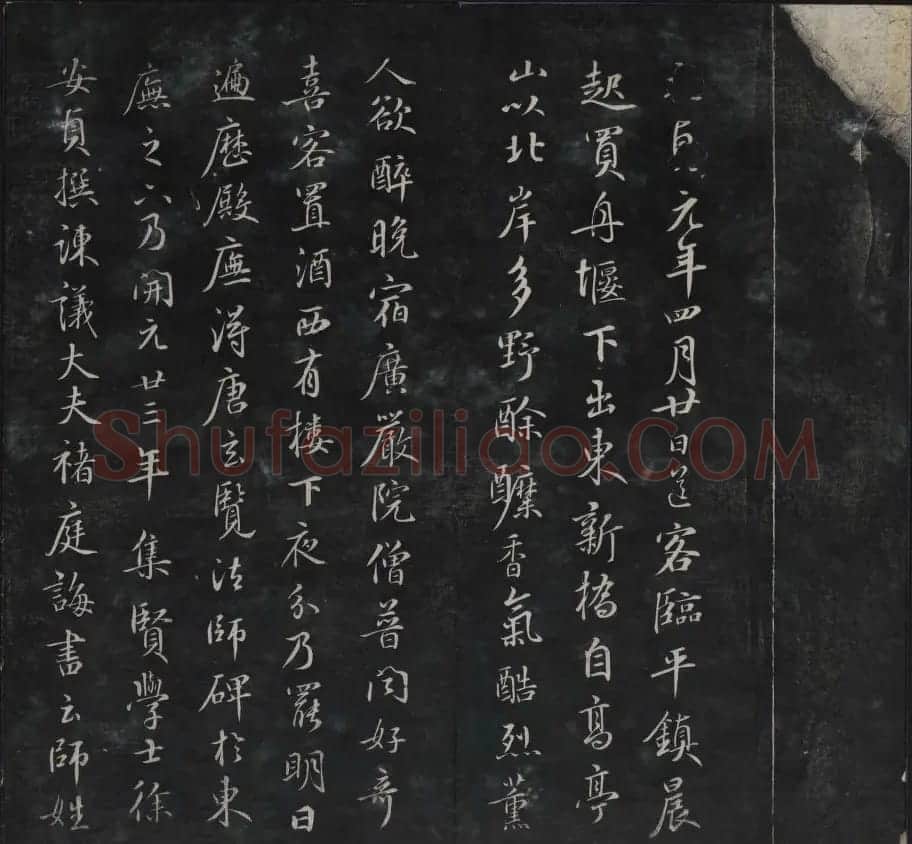 元年四月廿日送客臨平鎮晨
起買舟堰下出東新橋自髙亭
山以北岸多野酴醿香氣酷烈薰
人欲醉晚宿廣嚴院僧普聞好奇
喜客置酒西有樓下夜分乃罷明日
遍歷殿廡得唐玄覽法師碑於東
廡之下乃開元廿三年集賢學士徐
安貞撰諫議大夫褚庭誨書云師姓
Shufaziliao.COM